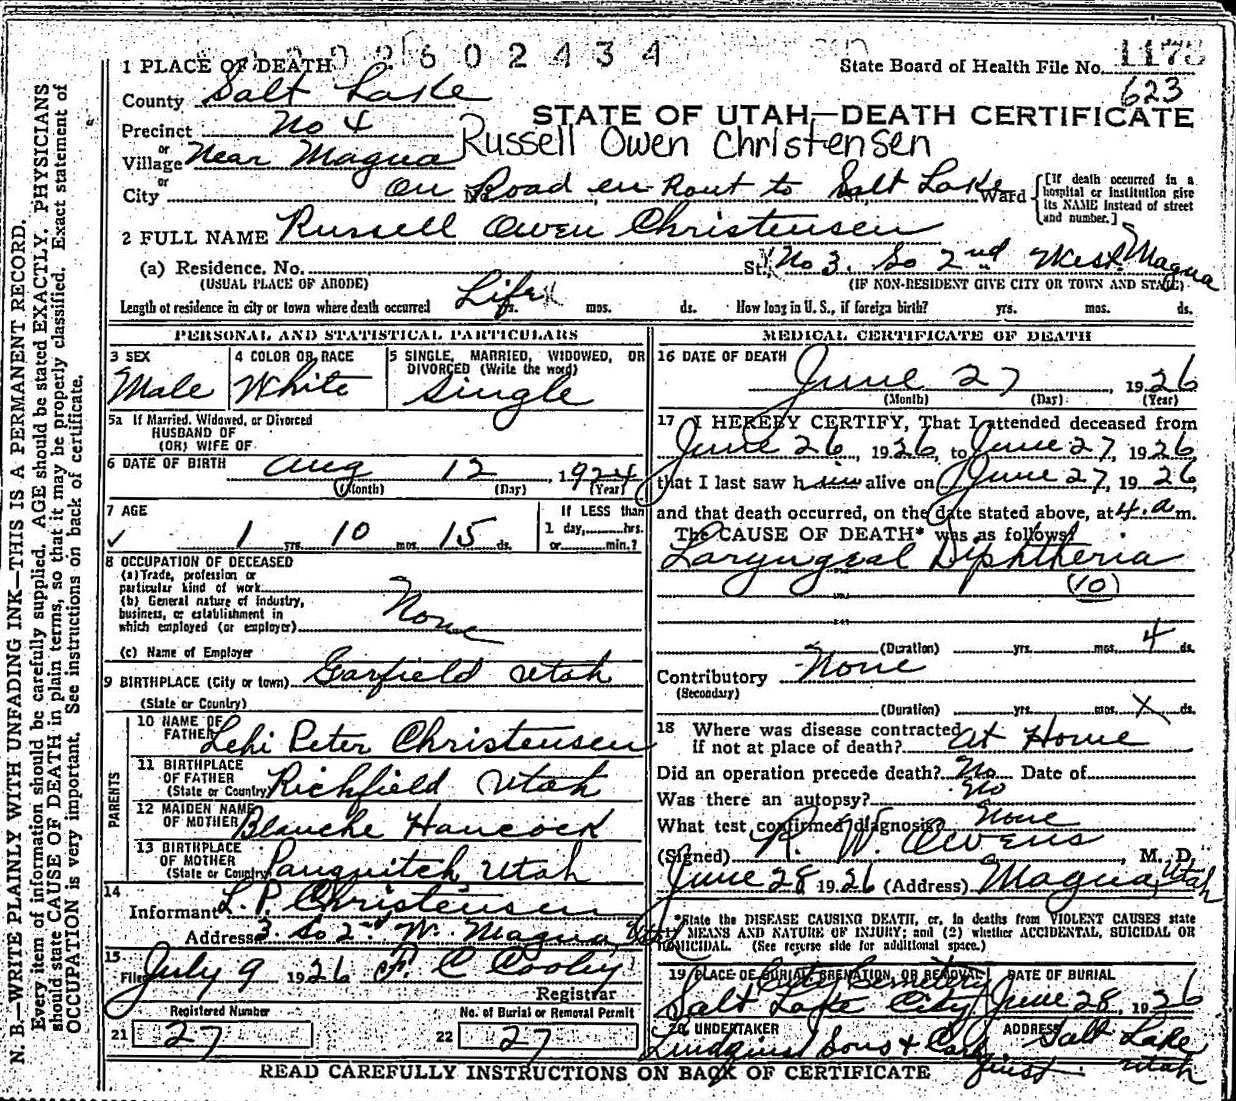 2602434
1 PLACE OF DEATH
State Board of Health File No. 1178
623
County Salt Lake
STATE OF UTAH—DEATH CERTIFICATE
Precinct No 4
Russell Owen Christensen
or
Village Near Magna
or
City on Road en Rout to Salt Lake Ward
[If death occurred in a hospital or institution give its NAME instead of street and number.]
2 FULL NAME Russell Owen Christensen
(a) Residence. No. St. No 3. So 2nd West Magna
(USUAL PLACE OF ABODE) (IF NON-RESIDENT GIVE CITY OR TOWN AND STATE)
Length of residence in city or town where death occurred Life yrs. mos. ds. How long in U. S., if foreign birth? yrs. mos. ds.
PERSONAL AND STATISTICAL PARTICULARS
3 SEX
Male
4 COLOR OR RACE
White
5 SINGLE, MARRIED, WIDOWED, OR
DIVORCED (Write the word)
Single
5a If Married, Widowed, or Divorced
HUSBAND OF
(OR) WIFE OF
6 DATE OF BIRTH Aug 12, 1924
(Month) (Day) (Year)
7 AGE
1 yrs. 10 mos. 15 ds.
If LESS than
1 day, hrs.
or min.?
8 OCCUPATION OF DECEASED
(a) Trade, profession or
particular kind of work
(b) General nature of industry,
business, or establishment in
which employed (or employer)
None
(c) Name of Employer
9 BIRTHPLACE (City or town) Garfield Utah
(State or Country)
PARENTS
10 NAME OF
FATHER Lehi Peter Christensen
11 BIRTHPLACE
OF FATHER
(State or Country) Richfield Utah
12 MAIDEN NAME
OF MOTHER Blanche Hancock
13 BIRTHPLACE
OF MOTHER
(State or Country) Panguitch Utah
14
Informant L. P. Christensen
Address 3 So 2nd W. Magna, Utah
15
Filed July 9 1926 F. C Cooley
Registrar
Registered Number
21 27
No. of Burial or Removal Permit
22 27
MEDICAL CERTIFICATE OF DEATH
16 DATE OF DEATH
June 27, 1926
(Month) (Day) (Year)
17 I HEREBY CERTIFY, That I attended deceased from
June 26, 1926, to June 27, 1926,
that I last saw him alive on June 27, 1926,
and that death occurred, on the date stated above, at 4.a m.
The CAUSE OF DEATH* was as follows:
Laryngeal Diphtheria
(10)
(Duration) yrs. mos. 4 ds.
Contributory None
(Secondary)
(Duration) yrs. mos. X ds.
18 Where was disease contracted
if not at place of death? At Home
Did an operation precede death? No Date of
Was there an autopsy? No
What test confirmed diagnosis? None
(Signed) R. W. Owens, M. D.
June 28 1926 (Address) Magna, Utah
*State the DISEASE CAUSING DEATH, or, in deaths from VIOLENT CAUSES state
(1) MEANS AND NATURE OF INJURY; and (2) whether ACCIDENTAL, SUICIDAL OR
HOMICIDAL. (See reverse side for additional space.)
19 PLACE OF BURIAL, CREMATION, OR REMOVAL
City Cemetery
Salt Lake City
DATE OF BURIAL
June 28, 1926
20 UNDERTAKER
Lindquist Sons &
ADDRESS
Salt Lake
Utah
READ CAREFULLY INSTRUCTIONS ON BACK OF CERTIFICATE
N. B.—WRITE PLAINLY WITH UNFADING INK—THIS IS A PERMANENT RECORD.
Every item of information should be carefully supplied. AGE should be stated EXACTLY. PHYSICIANS
should state CAUSE OF DEATH in plain terms, so that it may be properly classified. Exact statement of
OCCUPATION is very important. See instructions on back of certificate.